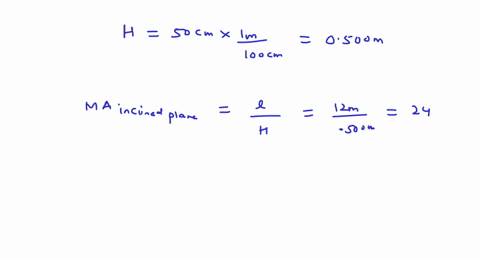 H = 50cm × 1m/100cm = 0.500m
MA incined plane = l/H = 12m/.500m = 24